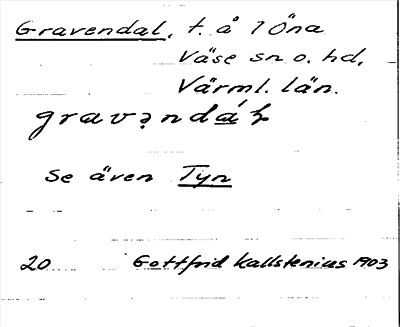 Gravendal, t. å 7 Öna
Väse sn o. hd,
Värml. län.
Se även Tyn
20 Gottfrid Kallstenius 1903